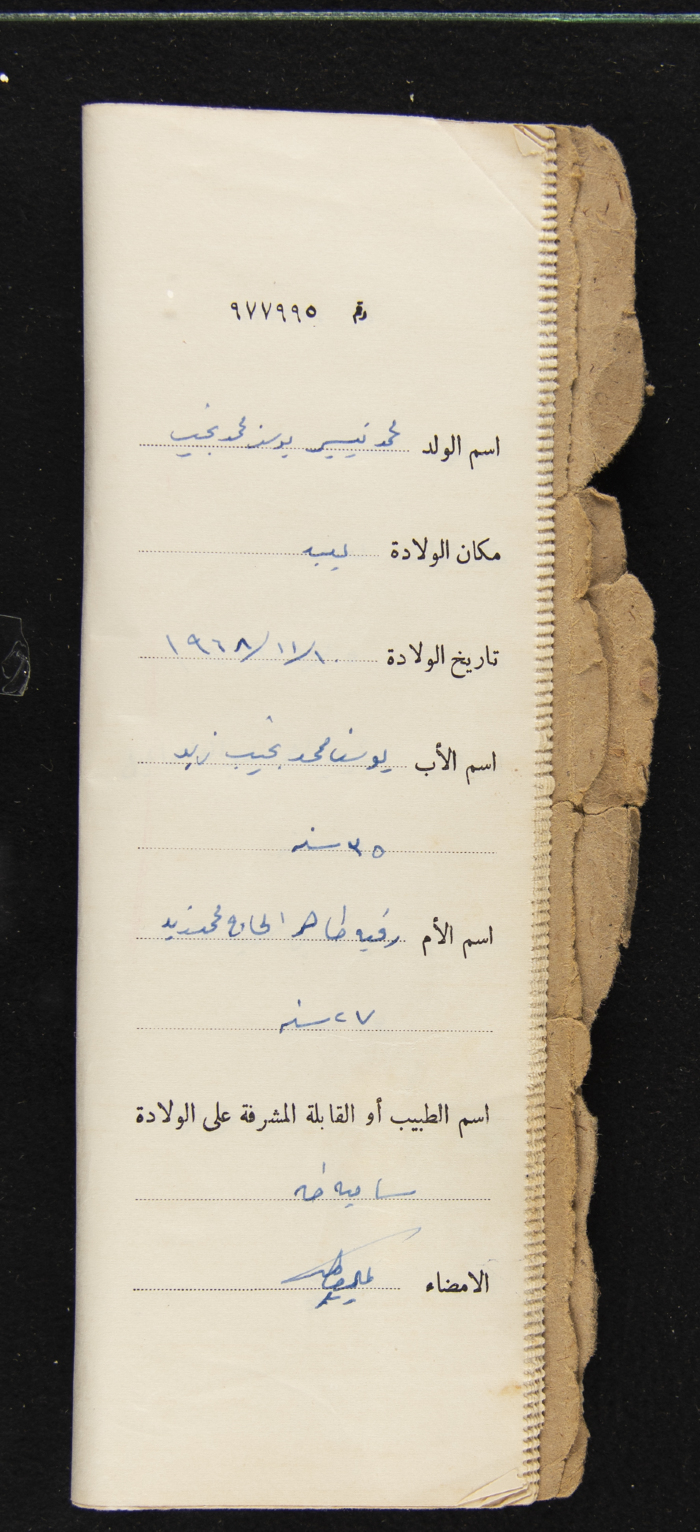 رقم ٩٧٧٩٩٥
اسم الولد محمد تيسير يوسف محمد نجيب
مكان الولادة
تاريخ الولادة ١٩٦٨/١١/١٠
اسم الأب يوسف محمد نجيب زيد
٣٥ سنه
اسم الأم رقيه طاهر الحاج محمد زيد
٢٧ سنه
اسم الطبيب أو القابلة المشرفة على الولادة
ساميه طه
الامضاء